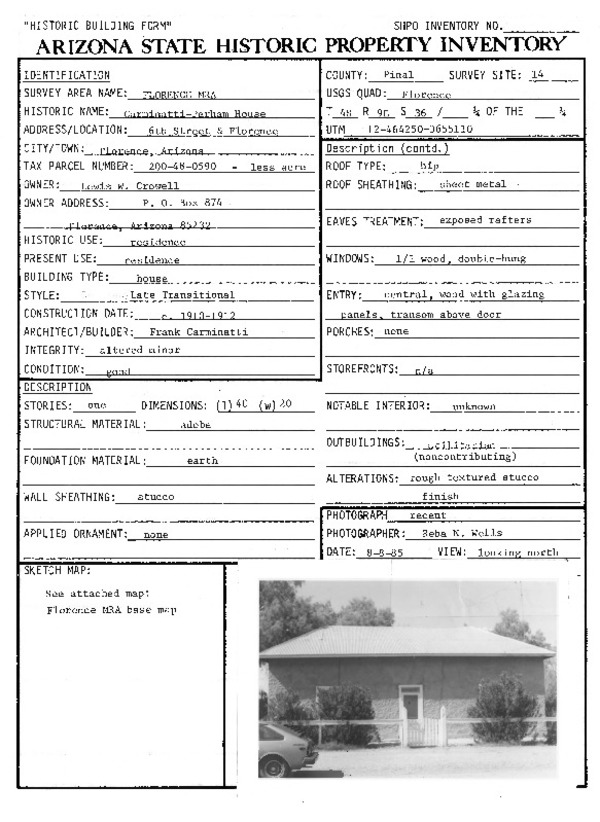 "HISTORIC BUILDING FORM" SHPO INVENTORY NO.
ARIZONA STATE HISTORIC PROPERTY INVENTORY
IDENTIFICATION
SURVEY AREA NAME: FLORENCE MRA
HISTORIC NAME: Carminatti-Perham House
ADDRESS/LOCATION: 6th Street & Florence
CITY/TOWN: Florence, Arizona
TAX PARCEL NUMBER: 200-48-0590 - less acre
OWNER: Lewis W. Crowell
OWNER ADDRESS: P. O. Box 874
Florence, Arizona 85232
HISTORIC USE: residence
PRESENT USE: residence
BUILDING TYPE: house
STYLE: Late Transitional
CONSTRUCTION DATE: c. 1910-1912
ARCHITECT/BUILDER: Frank Carminatti
INTEGRITY: altered minor
CONDITION: good
DESCRIPTION
STORIES: one DIMENSIONS: (l) 40 (w) 20
STRUCTURAL MATERIAL: adobe
FOUNDATION MATERIAL: earth
WALL SHEATHING: stucco
APPLIED ORNAMENT: none
COUNTY: Pinal SURVEY SITE: 14
USGS QUAD: Florence
T 4S R 9E S 36 / ¼ OF THE ¼
UTM 12-464250-3655110
Description (contd.)
ROOF TYPE: hip
ROOF SHEATHING: sheet metal
EAVES TREATMENT: exposed rafters
WINDOWS: 1/1 wood, double-hung
ENTRY: central, wood with glazing
panels, transom above door
PORCHES: none
STOREFRONTS: n/a
NOTABLE INTERIOR: unknown
OUTBUILDINGS: utilitarian
(noncontributing)
ALTERATIONS: rough textured stucco
finish
PHOTOGRAPH recent
PHOTOGRAPHER: Reba N. Wells
DATE: 8-8-85 VIEW: looking north
SKETCH MAP:
See attached map:
Florence MRA base map